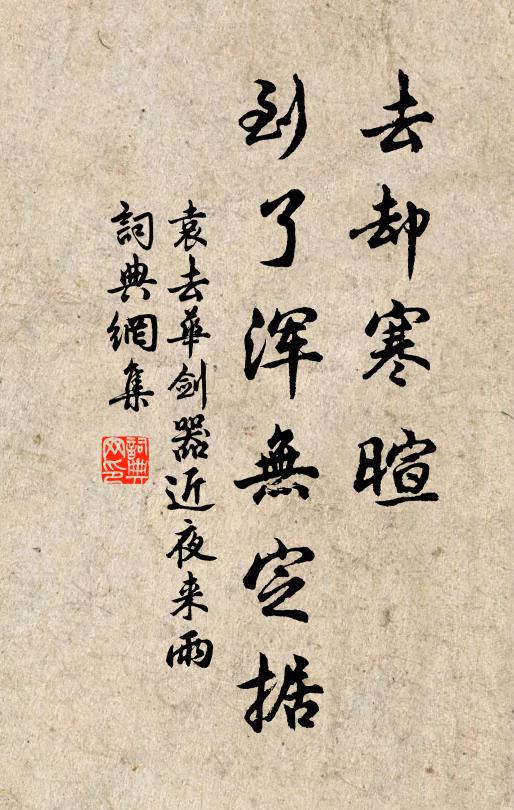 去却寒暄
到了浑無定据
袁去華剑器近夜来雨
詞典網集
詞典網印